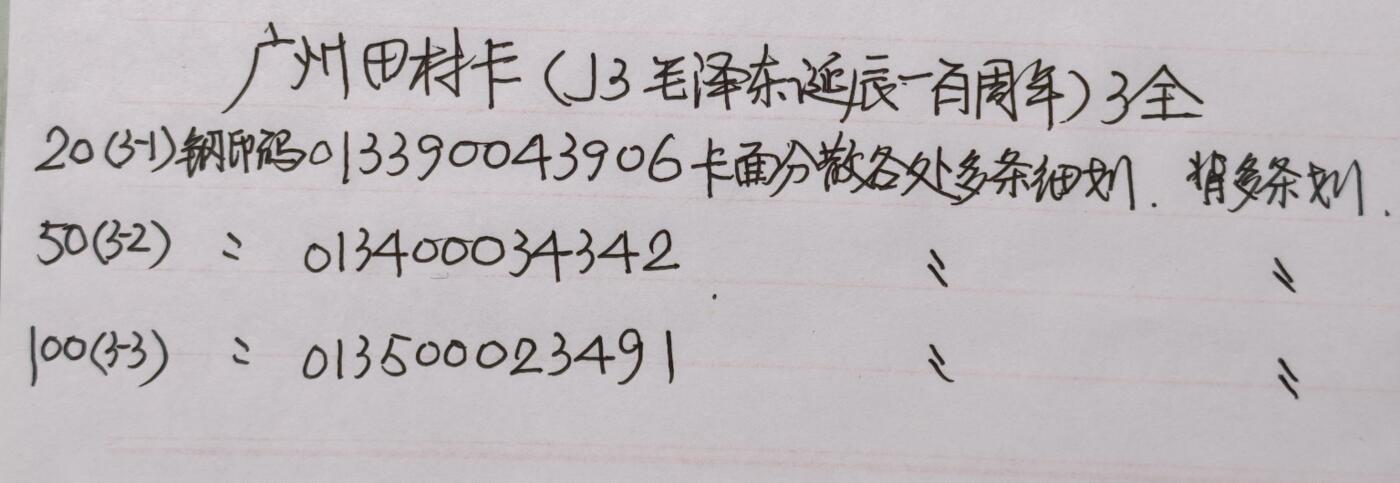 广州田村卡(J3毛泽东诞辰一百周年)3全
20(3-1)钢印码013390043906卡面分散各处多条细划.背多条划.
50(3-2) 〃 013400034342 〃 〃
100(3-3) 〃 013500023491 〃 〃